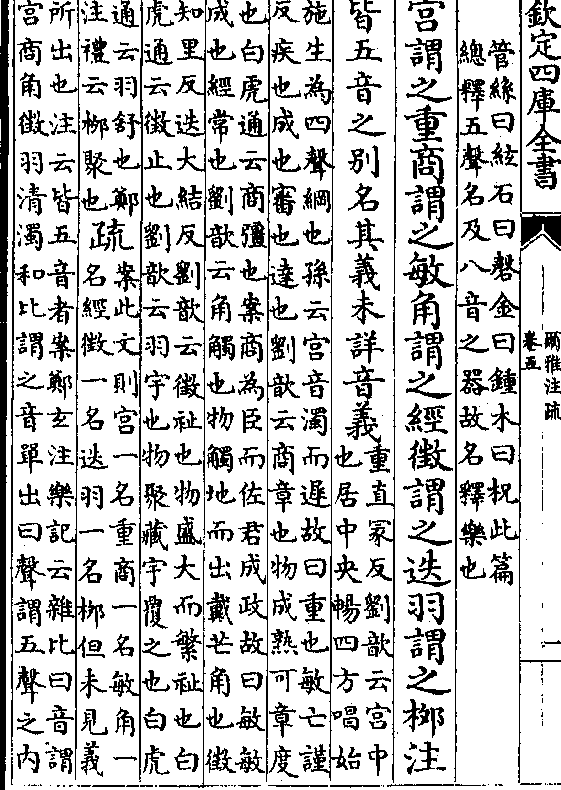 欽定四庫全書
爾雅注疏
卷五
一
管絲曰絃石曰磬金曰鍾木曰柷此篇
總釋五聲名及八音之器故名釋樂也
宮謂之重商謂之敏角謂之經徵謂之迭羽謂之柳注
皆五音之別名其義未詳音義
重直冢反劉歆云宮中
也居中央暢四方唱始
施生為四聲綱也孫云宮音濁而遲故曰重也敏亡謹
反疾也成也審也達也劉歆云商章也物成熟可章度
也白虎通云商彊也案商為臣而佐君成政故曰敏敏
成也經常也劉歆云角觸也物觸地而出戴芒角也徵
知里反迭大結反劉歆云徵祉也物盛大而繁祉也白
虎通云徵止也劉歆云羽宇也物聚藏宇覆之也白虎
通云羽舒也鄭
注禮云柳聚也
疏
案此文則宮一名重商一名敏角一
名經徵一名迭羽一名柳但未見義
所出也注云皆五音者案鄭玄注樂記云雜比曰音謂
宮商角徵羽清濁和比謂之音單出曰聲謂五聲之內